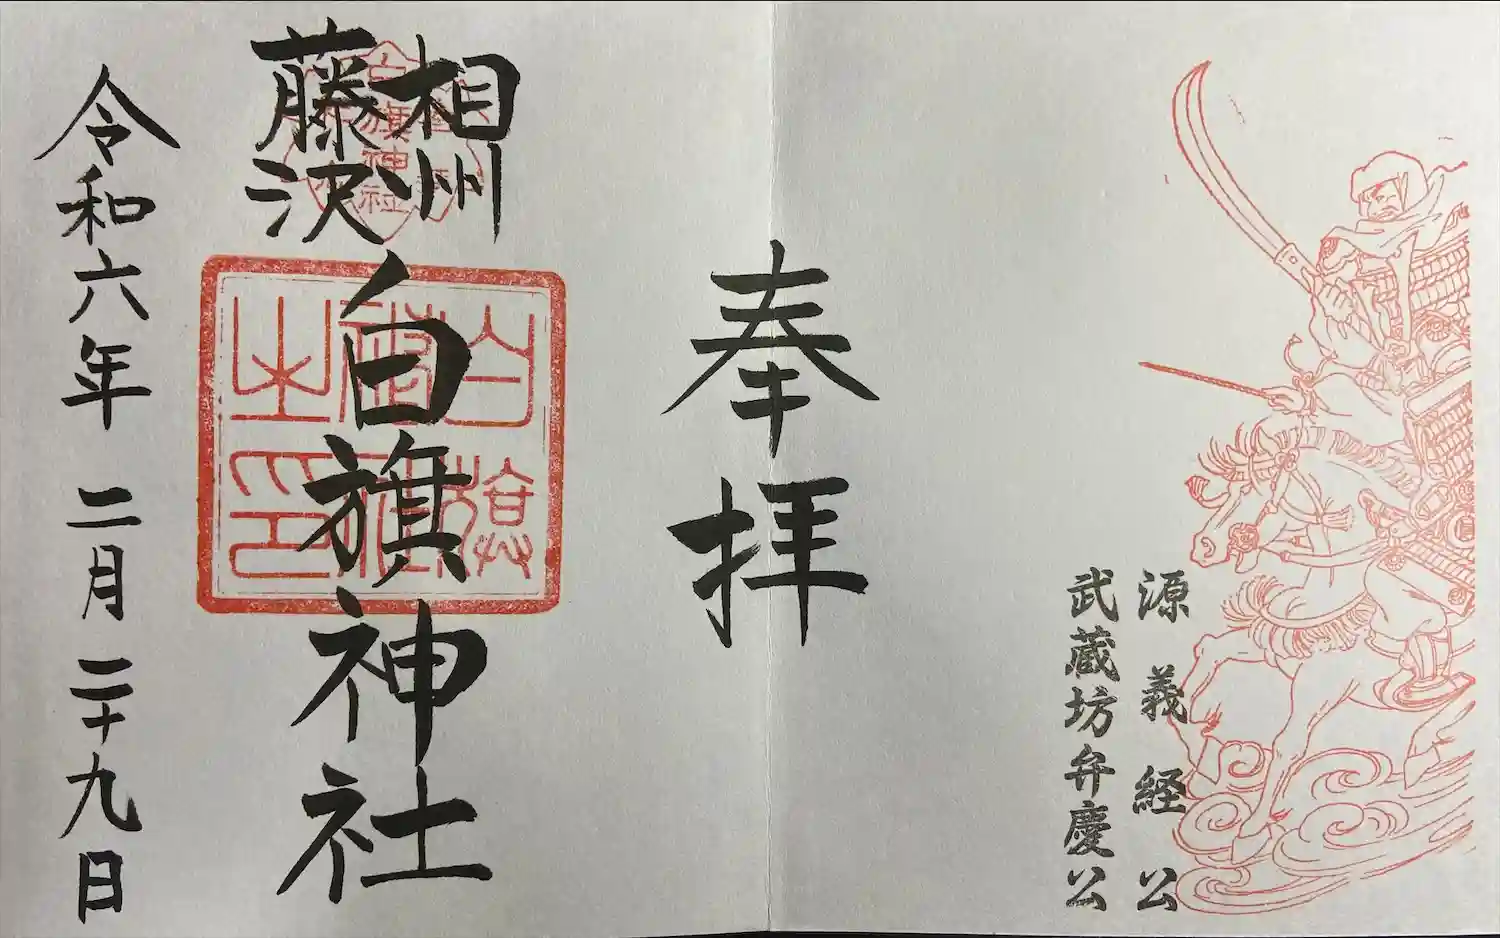 源義経公
武蔵坊弁慶公
奉拝
相州
藤沢
白旗神社
白旗神社
白旗神社之印
令和六年二月二十九日